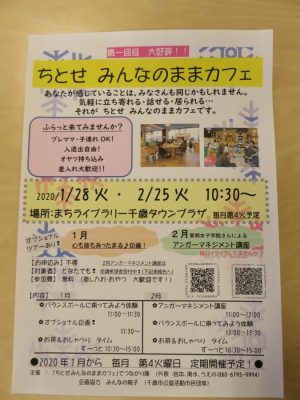 第一回目 大好評！！
ちとせ みんなのままカフェ
あなたが感じていることは、みなさんも同じかもしれません。
気軽に立ち寄れる・話せる・居られる…
それが ちとせ みんなのままカフェです。
ふらっと来てみませんか？
プレママ・子連れOK！
入退出自由！
オヤツ持ち込み
差入れ大歓迎！！
2020/1/28火・ 2/25火 10:30～
場所：まちライブラリー千歳タウンプラザ 毎月第4火予定
オプショナル
ツアーあり！
1月
心も体もあったまる♪企画！
2月
アンガーマネジメント講座
【お申込み】不要
【対象者】どなたでも！
【参加費】無料
【内容】 1月
2月
●バランスボールに乗ってみよう体験
11:00～11:30
●オプショナル企画！
●お茶＆おしゃべり タイム
ずーっと10:30～15:00
●アンガーマネジメント講座
●バランスボールに乗ってみよう体験
●お茶＆おしゃべり タイム
ずーっと10:30～15:00
●2020年1月から 毎月 第4火曜日 定期開催予定！●
企画協力 みんなの椅子